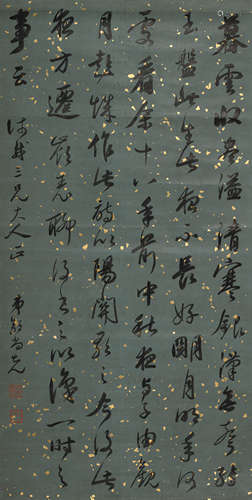 暮雲收盡溢清寒銀漢無聲轉
玉盤此生此夜不長好明月明年何
處看余十八年前中秋夜與子由觀
月彭城作此詩以陽關歌之今復此
夜方遷嶺表聊復書之以識一時之
事云 三兄大人正 弟